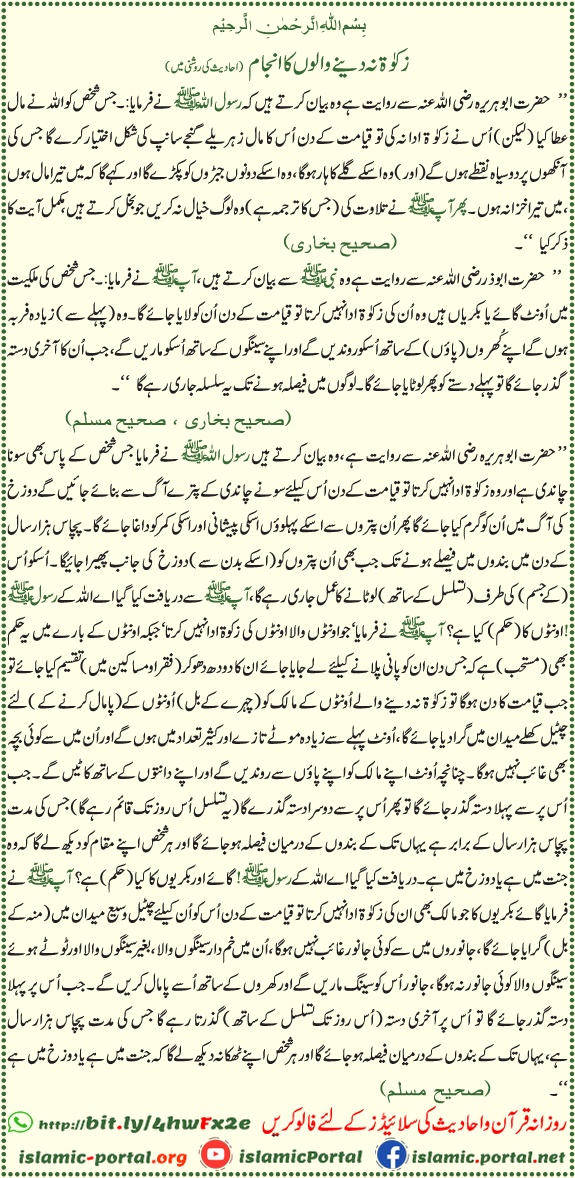 بِسْمِ اللهِ الرَّحْمٰنِ الرَّحِيْمِ
زکوٰۃ نہ دینے والوں کا انجام (احادیث کی روشنی میں)
’’ حضرت ابو ہریرہ رضی اللہ عنہ سے روایت ہے وہ بیان کرتے ہیں کہ رسول اللہ ﷺ نے فرمایا:۔ جس شخص کو اللہ نے مال
عطا کیا (لیکن) اُس نے زکوٰۃ ادا نہ کی تو قیامت کے دن اُس کا مال زہریلے گنجے سانپ کی شکل اختیار کرے گا جس کی
آنکھوں پر دو سیاہ نقطے ہوں گے (اور) وہ اسکے گلے کا ہار ہوگا، وہ اسکے دونوں جبڑوں کو پکڑے گا اور کہے گا کہ میں تیرا مال ہوں
، میں تیرا خزانہ ہوں۔ پھر آپ ﷺ نے تلاوت کی (جس کا ترجمہ ہے) وہ لوگ خیال نہ کریں جو بخل کرتے ہیں، مکمل آیت کا
ذکر کیا ‘‘۔ (صحیح بخاری)
’’ حضرت ابوذر رضی اللہ عنہ سے روایت ہے وہ نبی ﷺ سے بیان کرتے ہیں، آپ ﷺ نے فرمایا:۔ جس شخص کی ملکیت
میں اُونٹ گائے یا بکریاں ہیں وہ اُن کی زکوٰۃ ادا نہیں کرتا تو قیامت کے دن اُن کو لایا جائے گا۔ وہ (پہلے سے) زیادہ فربہ
ہوں گے اپنے کُھروں (پاؤں) کے ساتھ اُسکو روندیں گے اور اپنے سینگوں کے ساتھ اُسکو ماریں گے، جب اُن کا آخری دستہ
گذر جائے گا تو پہلے دستے کو پھر لوٹایا جائے گا۔ لوگوں میں فیصلہ ہونے تک یہ سلسلہ جاری رہے گا ‘‘۔
(صحیح بخاری ، صحیح مسلم)
’’ حضرت ابو ہریرہ رضی اللہ عنہ سے روایت ہے، وہ بیان کرتے ہیں رسول اللہ ﷺ نے فرمایا جس شخص کے پاس بھی سونا
چاندی ہے اور وہ زکوٰۃ ادا نہیں کرتا تو قیامت کے دن اُس کیلئے سونے چاندی کے پترے آگ سے بنائے جائیں گے دوزخ
کی آگ میں اُن کو گرم کیا جائے گا پھر اُن پتروں سے اسکے پہلوؤں اسکی پیشانی اور اسکی کمر کو داغا جائے گا۔ پچاس ہزار سال
کے دن میں بندوں میں فیصلے ہونے تک جب بھی اُن پتروں کو (اسکے بدن سے) دوزخ کی جانب پھیرا جائیگا۔ اُسکو اُس
(کے جسم) کی طرف (تسلسل کے ساتھ) لوٹانے کا عمل جاری رہے گا، آپ ﷺ سے دریافت کیا گیا اے اللہ کے رسول ﷺ
! اونٹوں کا (حکم) کیا ہے؟ آپ ﷺ نے فرمایا’ جو اونٹوں والا اونٹوں کی زکوٰۃ ادا نہیں کرتا‘ جبکہ اونٹوں کے بارے میں یہ حکم
بھی (مستحب) ہے کہ جس دن ان کو پانی پلانے کیلئے لے جایا جائے ان کا دودھ دھو کر (فقرا و مساکین میں) تقسیم کیا جائے تو
جب قیامت کا دن ہوگا تو زکوٰۃ نہ دینے والے اُونٹوں کے مالک کو (چہرے کے بل) اُونٹوں کے (پامال کرنے کے) لئے
چٹیل کھلے میدان میں گرا دیا جائے گا، اُونٹ پہلے سے زیادہ موٹے تازے اور کثیر تعداد میں ہوں گے اور اُن میں سے کوئی بچہ
بھی غائب نہیں ہوگا۔ چنانچہ اُونٹ اپنے مالک کو اپنے پاؤں سے روندیں گے اور اپنے دانتوں کے ساتھ کاٹیں گے۔ جب
اُس پر سے پہلا دستہ گذر جائے گا تو پھر اُس پر سے دوسرا دستہ گذرے گا (یہ تسلسل اُس روز تک قائم رہے گا) جس کی مدت
پچاس ہزار سال کے برابر ہے یہاں تک کے بندوں کے درمیان فیصلہ ہو جائے گا اور ہر شخص اپنے مقام کو دیکھ لے گا کہ وہ
جنت میں ہے یا دوزخ میں ہے۔ دریافت کیا گیا اے اللہ کے رسول ﷺ! گائے اور بکریوں کا کیا (حکم) ہے؟ آپ ﷺ نے
فرمایا گائے بکریوں کا جو مالک بھی ان کی زکوٰۃ ادا نہیں کرتا تو قیامت کے دن اُس کو اُن کیلئے چٹیل وسیع میدان میں (منہ کے
بل) گرایا جائے گا، جانوروں میں سے کوئی جانور غائب نہیں ہوگا، اُن میں خم دار سینگوں والا، بغیر سینگوں والا اور ٹوٹے ہوئے
سینگوں والا کوئی جانور نہ ہوگا، جانور اُس کو سینگ ماریں گے اور کھروں کے ساتھ اُسے پامال کریں گے۔ جب اُس پر پہلا
دستہ گذر جائے گا تو اُس پر آخری دستہ (اُس روز تک تسلسل کے ساتھ) گذرتا رہے گا جس کی مدت پچاس ہزار سال
ہے، یہاں تک کے بندوں کے درمیان فیصلہ ہو جائے گا اور ہر شخص اپنے ٹھکانہ دیکھ لے گا کہ جنت میں ہے یا دوزخ میں ہے
‘‘۔ (صحیح مسلم)
روزانہ قرآن و احادیث کی سلائیڈز کے لئے فالو کریں http://bit.ly/4hwFx2e
islamic-portal.org islamicPortal islamic.portal.net